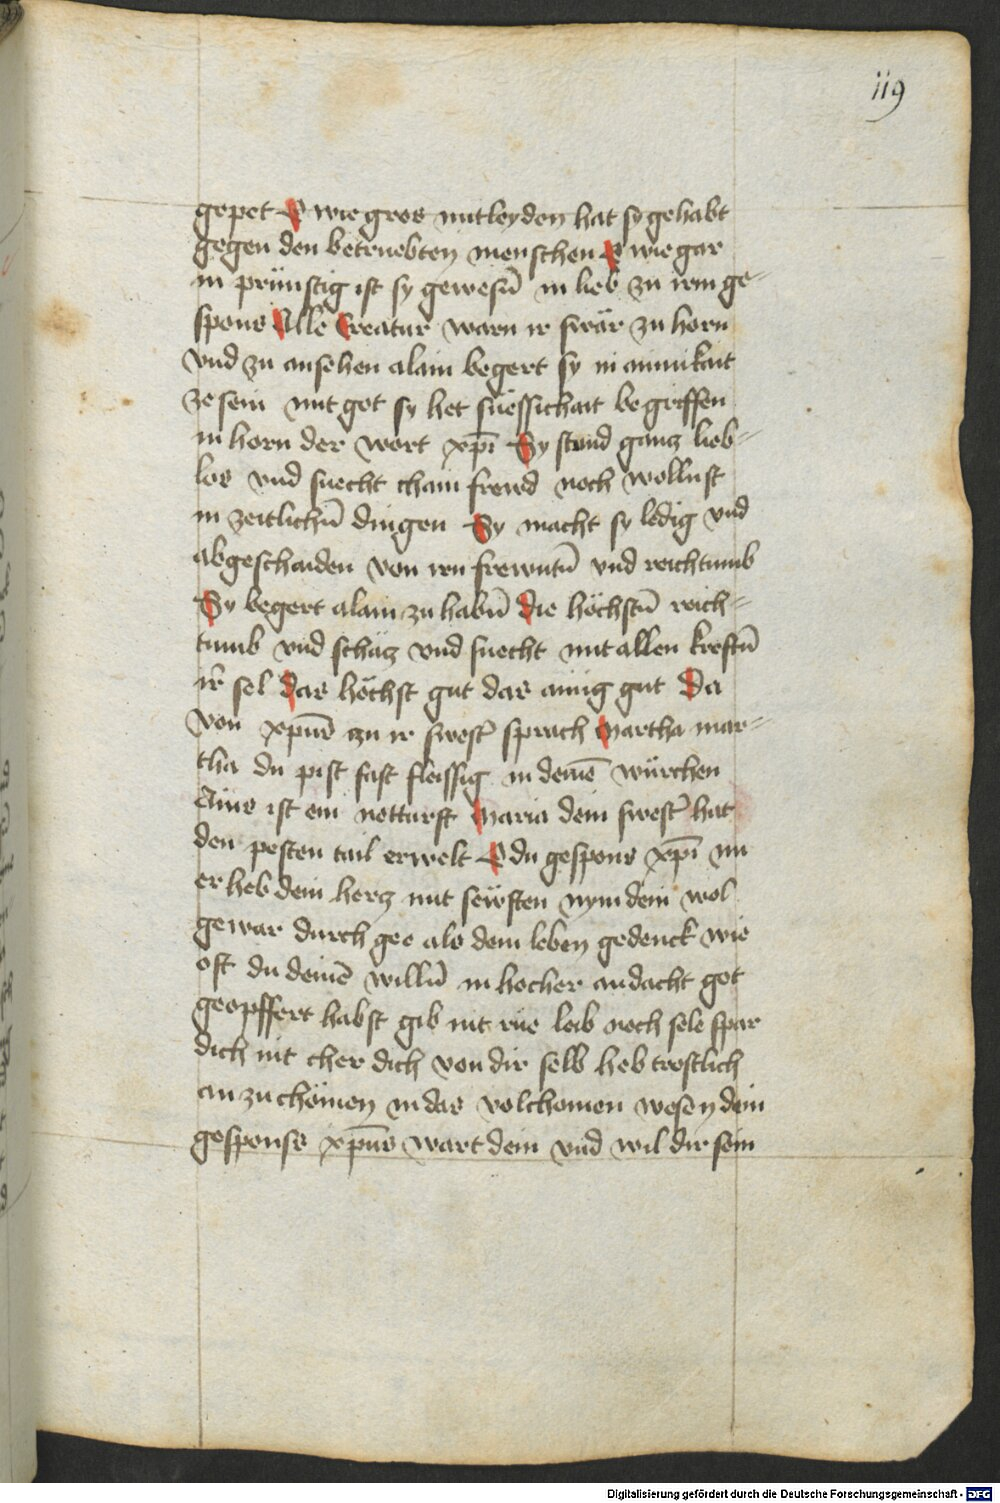 119
gepet O wie gros mitleyden hat sy gehabt
gegen den betruebten menschen O wie gar
in prünstig ist sy gewesn̄ in lieb zu irm ge-
spons Alle Creatur warn ir swär zu horn
vnd zu ansehen alain begert sy in ainikait
ze sein mit got sy het süessichait begriffen
in horn der wort xp̄i Sy stund gantz lieb-
los vnd suecht chain frewd noch wollust
in zeitlichn̄ dingen Sy macht sy ledig vnd
abgeschaiden von irn frewntn̄ vnd reichtumb
Sy begert alain zu habn̄ die höchstn̄ reich-
tumb vnd schätz vnd suecht mit allen kreftn̄
ir̄ sel das höchst gut das ainig gut Da
von xpūs zu ir swest̄ sprach Martha mar-
tha du pist fast fleissig in deinē würchen
Ains ist ein notturft Maria dein swest̄ hat
den pesten tail erwelt O du gespons xp̄i nu
erheb dein hertz mit sewften nym dein wol
gewar durch gee als dein leben gedenck wie
oft du deinē willn̄ in hocher andacht got
geopffert habst gib nit rue leib noch sele spar
dich nit cher dich von dir selb heb trostlich
an zu chömen in das volchomen wesen dein
gespons xpūs wart dein vnd wil dir sein
Digitalisierung gefördert durch die Deutsche Forschungsgemeinschaft - DFG